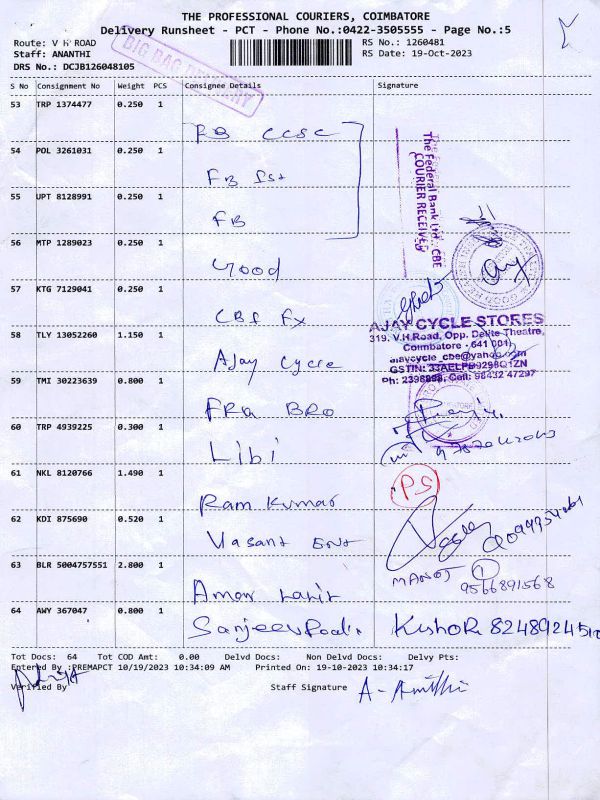 THE PROFESSIONAL COURIERS, COIMBATORE
Delivery Runsheet - PCT - Phone No.:0422-3505555 - Page No.:5
Route: V H ROAD
RS No.: 1260481
Staff: ANANTHI
RS Date: 19-Oct-2023
DRS No.: DCJB126048105
BIG BAG DELIVERY
S No Consignment No Weight PCS Consignee Details Signature
53 TRP 1374477 0.250 1 FB CCSC
54 POL 3261031 0.250 1 FB fst
55 UPT 8128991 0.250 1 FB
The Federal Bank Ltd., CBE
COURIER RECEIVED
56 MTP 1289023 0.250 1 Good
57 KTG 7129041 0.250 1 CBS FX
AJAY CYCLE STORES
319, V.H.Road, Opp. Delite Theatre,
Coimbatore - 641 001
ajaycycle_cbe@yahoo.com
Ph: 2398898, Cell: 98432 47297
58 TLY 13052260 1.150 1 Ajay Cycle
59 TMI 30223639 0.800 1 FRG BRO
60 TRP 4939225 0.300 1 Libi
61 NKL 8120766 1.490 1 Ram Kumar
62 KDI 875690 0.520 1 Vasant Ent
63 BLR 5004757551 2.800 1 MANOJ 1
9566891568
64 AWY 367047 0.800 1 KishoR
Tot Docs: 64 Tot COD Amt: 0.00 Delvd Docs: Non Delvd Docs: Delvy Pts:
Entered By :PREMAPCT 10/19/2023 10:34:09 AM Printed On: 19-10-2023 10:34:17
Verified By Staff Signature